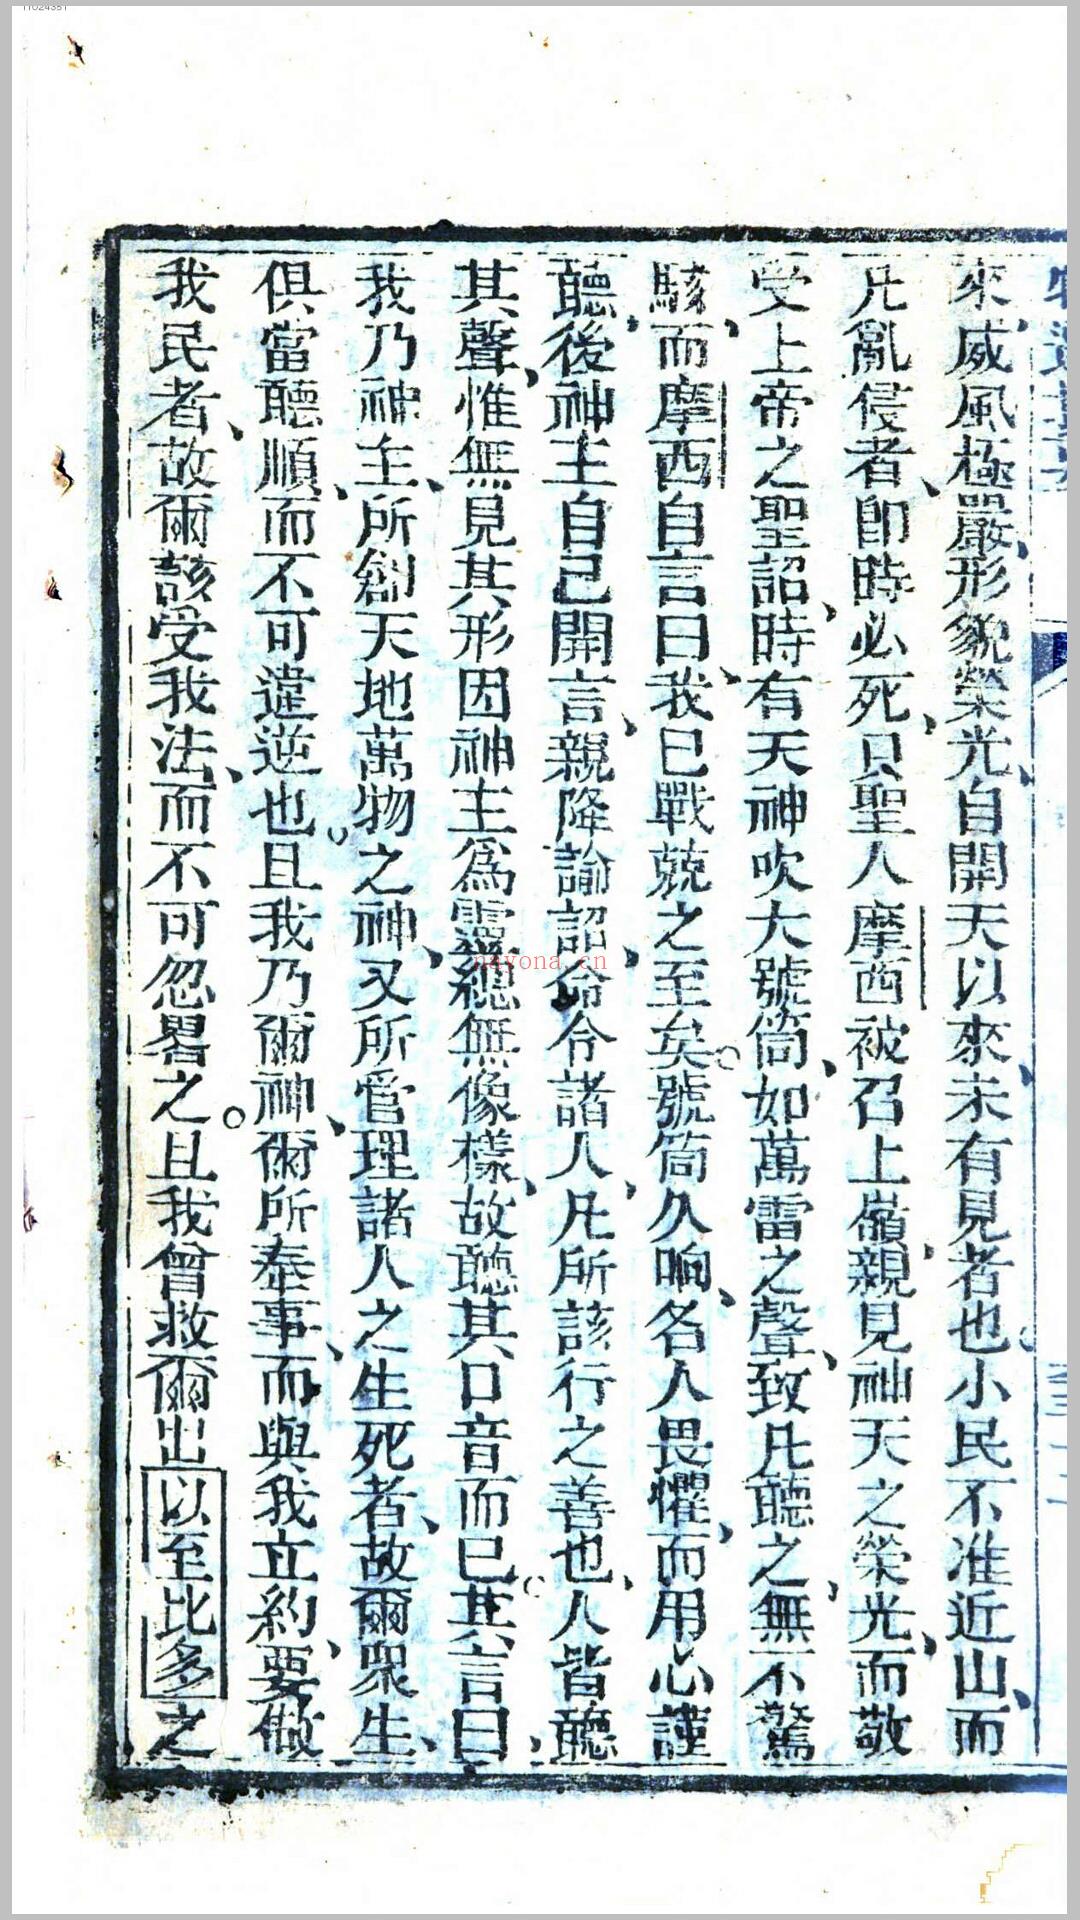 來、威風極嚴、形貌榮光、自開天以來、未有見者也。小民不准近山、而
凡亂侵者、卽時必死、只聖人摩西被召上嶺、親見神天之榮光、而敬
受上帝之聖詔時、有天神吹大號筒、如萬雷之聲、致凡聽之、無不驚
駭、而摩西自言曰、我已戰兢之至矣。號筒久响、各人畏懼、而用心謹
聽、後神主自己開言、親降諭詔、命令諸人、凡所該行之善也、人皆聽
其聲、惟無見其形、因神主爲靈、總無像樣、故聽其口音而已。其言曰、
我乃神主、所創天地萬物之神、又所管理諸人之生死者、故爾眾生、
俱當聽順、而不可違逆也。且我乃爾神、爾所奉事、而與我立約、要做
我民者、故爾該受我法、而不可忽畧之。且我曾救爾出以至比多之
nayona.cn